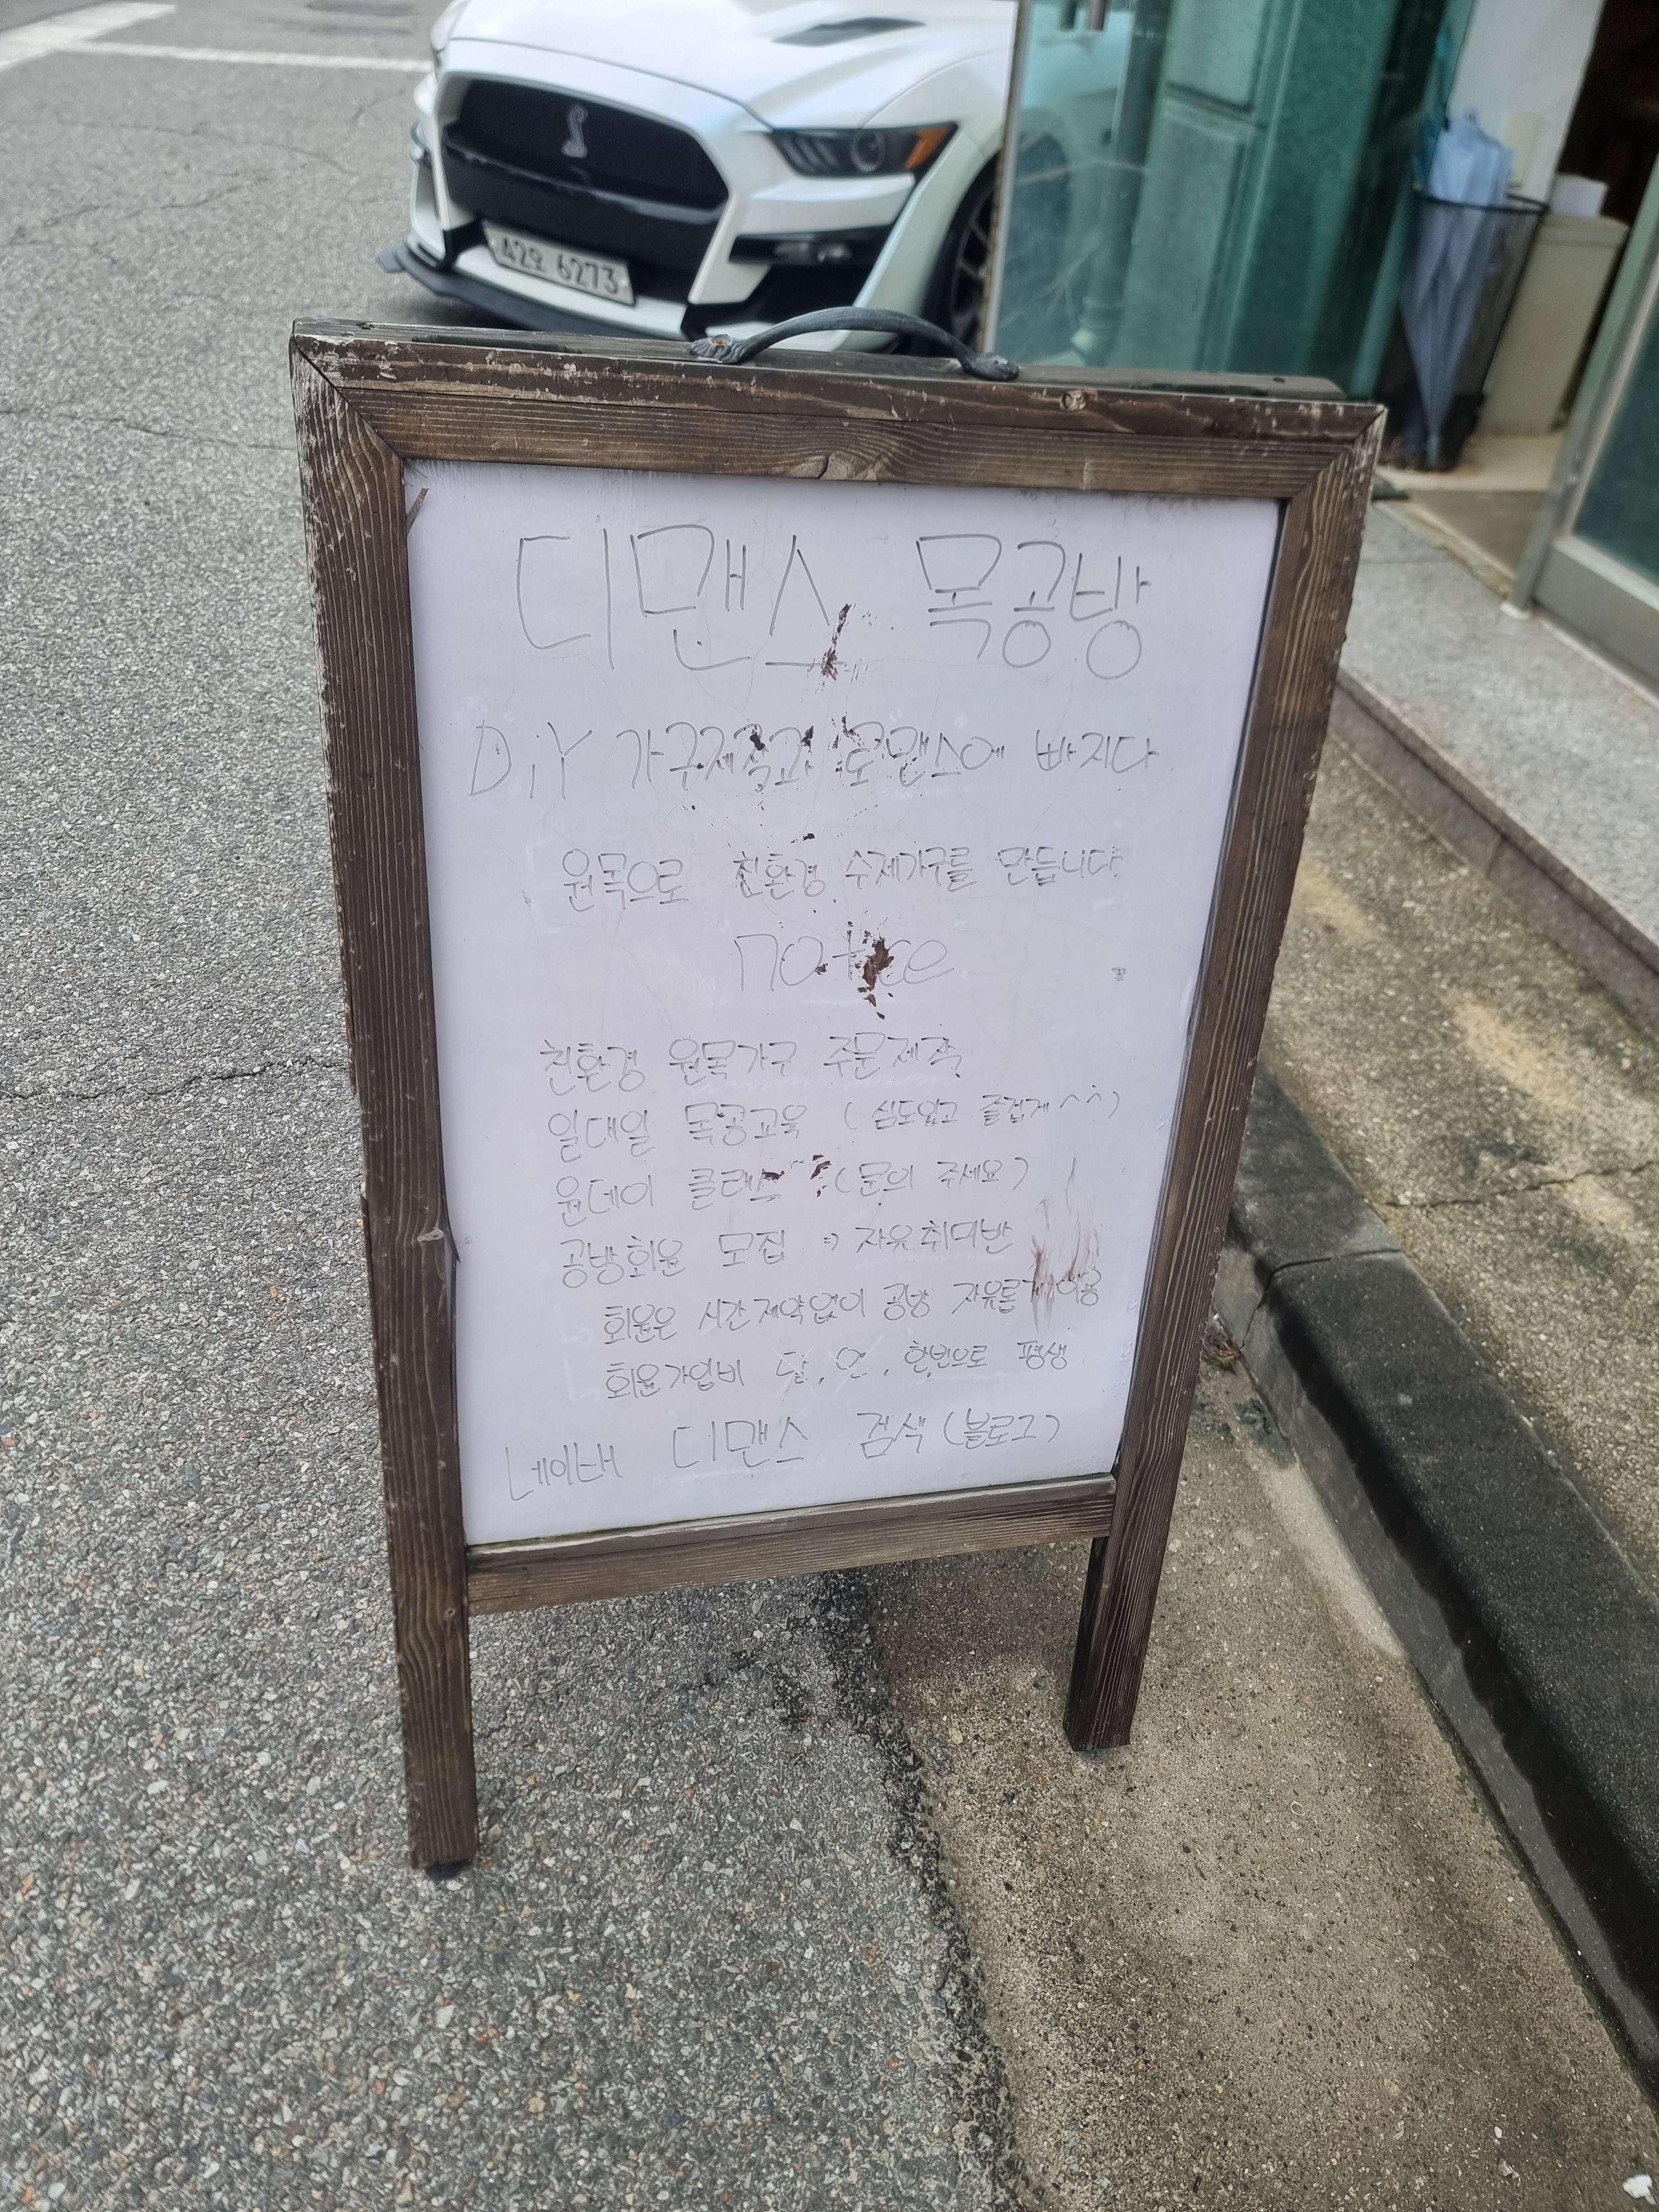 42오 6273
디맨스 목공방
DiY 가구제작과 로맨스에 빠지다
원목으로 친환경 수제가구를 만듭니다
notice
친환경 원목가구 주문제작
일대일 목공교육 (심도있고 즐겁게 ^^)
원데이 클래스 (문의 주세요)
공방회원 모집 => 자유취미반
회원은 시간제약없이 공방 자유롭게 이용
회원가입비 달, 연, 한번으로 평생
네이버 디맨스 검색(블로그)